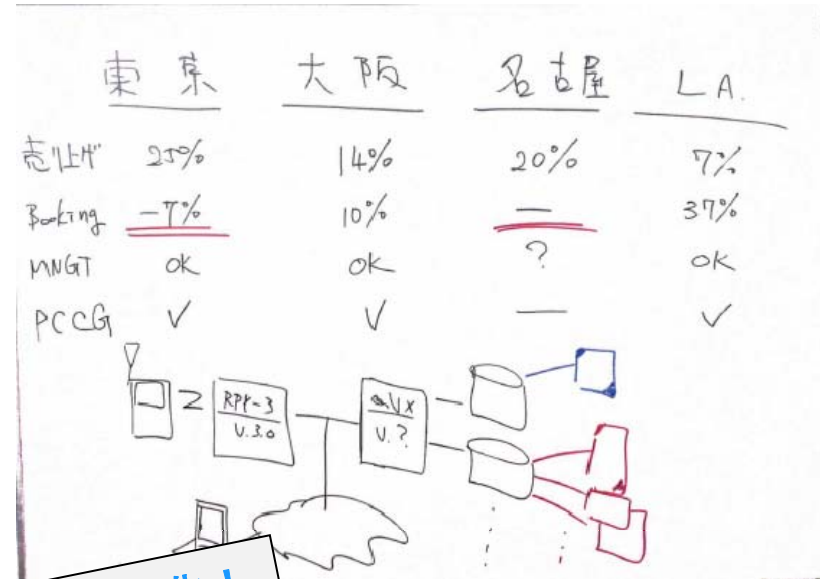 東京 大阪 名古屋 L A.
売り上げ 25% 14% 20% 7%
Booking -7% 10% — 37%
MNGT OK OK ? OK
PCCG ✓ ✓ — ✓
V.3.0 V.?